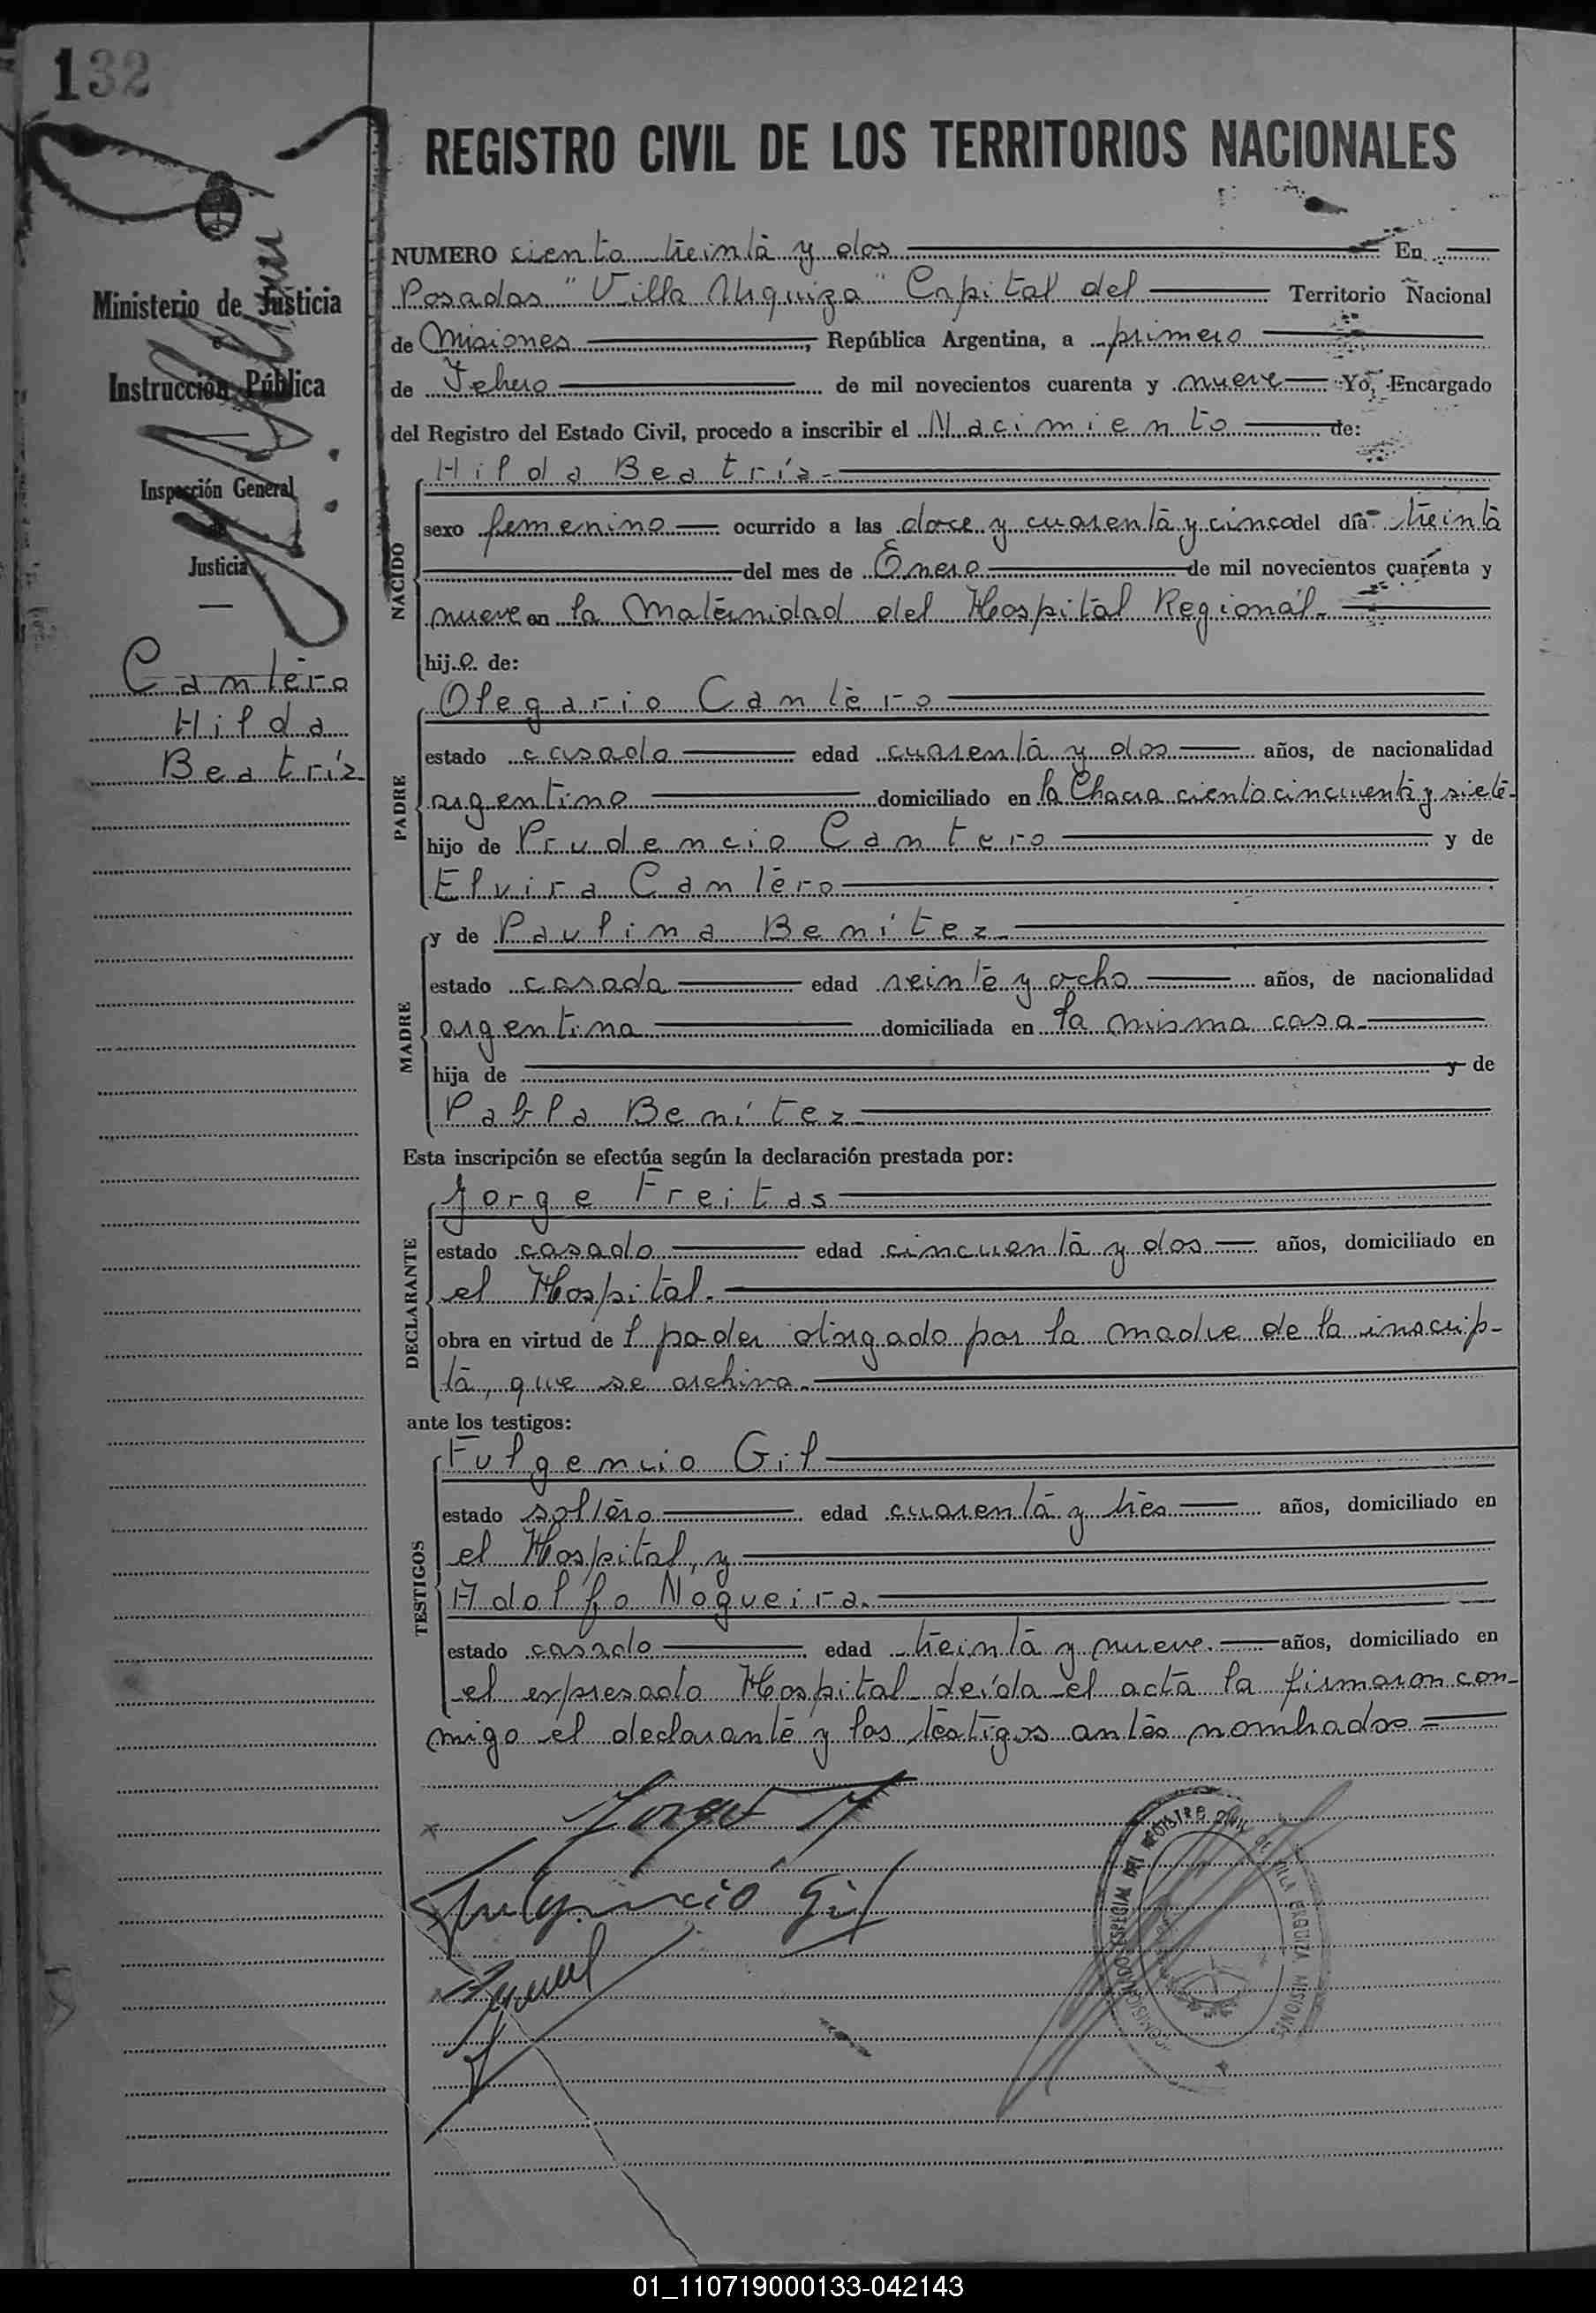 132
REGISTRO CIVIL DE LOS TERRITORIOS NACIONALES
Ministerio de Justicia
e
Instrucción Pública
Inspección General
de
Justicia
Cantero
Hilda
Beatríz
NUMERO ciento treinta y dos En
Posadas "Villa Urquiza" Capital del Territorio Nacional
de Misiones, República Argentina, a primero
de Febrero de mil novecientos cuarenta y nueve Yo, Encargado
del Registro del Estado Civil, procedo a inscribir el Nacimiento de:
NACIDO
Hilda Beatríz.
sexo femenino ocurrido a las doce y cuarenta y cinco del día treinta
del mes de Enero de mil novecientos cuarenta y
nueve en la Maternidad del Hospital Regional.
hija de:
PADRE
Olegario Cantero
estado casado edad cuarenta y dos años, de nacionalidad
argentino domiciliado en la Chacra ciento cincuenta y siete-
hijo de Prudencio Cantero y de
Elvira Cantero
MADRE
y de Paulina Benítez.
estado casada edad veinte y ocho años, de nacionalidad
argentina domiciliada en la misma casa.
hija de y de
Pabla Benítez.
Esta inscripción se efectúa según la declaración prestada por:
DECLARANTE
Jorge Freitas
estado casado edad cincuenta y dos años, domiciliado en
el Hospital.
obra en virtud del poder otorgado por la madre de la inscrip-
ta, que se archiva.
ante los testigos:
TESTIGOS
Fulgencio Gil
estado soltero edad cuarenta y tres años, domiciliado en
el Hospital, y
Adolfo Nogueira.
estado casado edad treinta y nueve. años, domiciliado en
el expresado Hospital leída el acta la firmaron con-
migo el declarante y los testigos antes nombrados
Jorge
Fulgencio Gil
REGISTRO CIVIL DE VILLA URQUIZA MISIONES
01_110719000133-042143